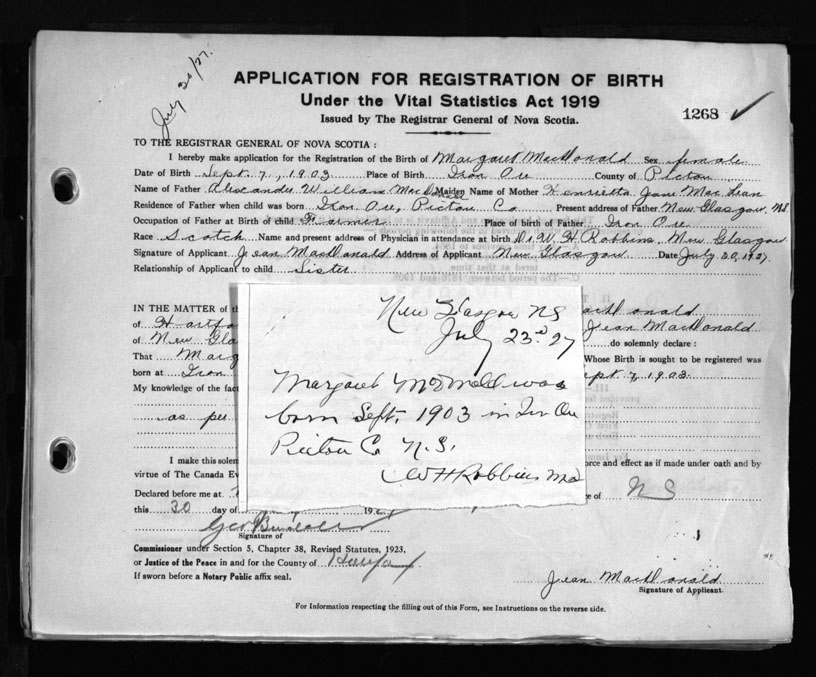 July 30/27.
APPLICATION FOR REGISTRATION OF BIRTH
Under the Vital Statistics Act 1919
1268 ✓
Issued by The Registrar General of Nova Scotia.
TO THE REGISTRAR GENERAL OF NOVA SCOTIA :
I hereby make application for the Registration of the Birth of Margaret MacDonald Sex female
Date of Birth Sept. 7, 1903 Place of Birth Iron Ore County of Pictou
Name of Father Alexander William MacDonald Maiden Name of Mother Henrietta Jane MacLean
Residence of Father when child was born Iron Ore, Pictou Co Present address of Father New Glasgow, NS
Occupation of Father at Birth of child Farmer Place of birth of Father Iron Ore
Race Scotch Name and present address of Physician in attendance at birth Dr. W. H. Robbins, New Glasgow
Signature of Applicant Jean MacDonald Address of Applicant New Glasgow Date July 30, 1927
Relationship of Applicant to child Sister
IN THE MATTER of th
MacDonald
of
Jean MacDonald
of New Gla
do solemnly declare :
That Marg
Whose Birth is sought to be registered was
born at Iron
ept 7, 1903
My knowledge of the fac
as per
I make this solem
orce and effect as if made under oath and by
virtue of The Canada Ev
Declared before me at
e of NS
this 30 day of 19
Signature of
Commissioner under Section 5, Chapter 38, Revised Statutes, 1923,
or Justice of the Peace in and for the County of
If sworn before a Notary Public affix seal.
Jean MacDonald
Signature of Applicant.
For Information respecting the filling out of this Form, see Instructions on the reverse side.
New Glasgow NS
July 23rd 27
Margaret McDonald was
born Sept. 1903 in Irn Ore
Pictou Co N.S.
WH Robbins MD